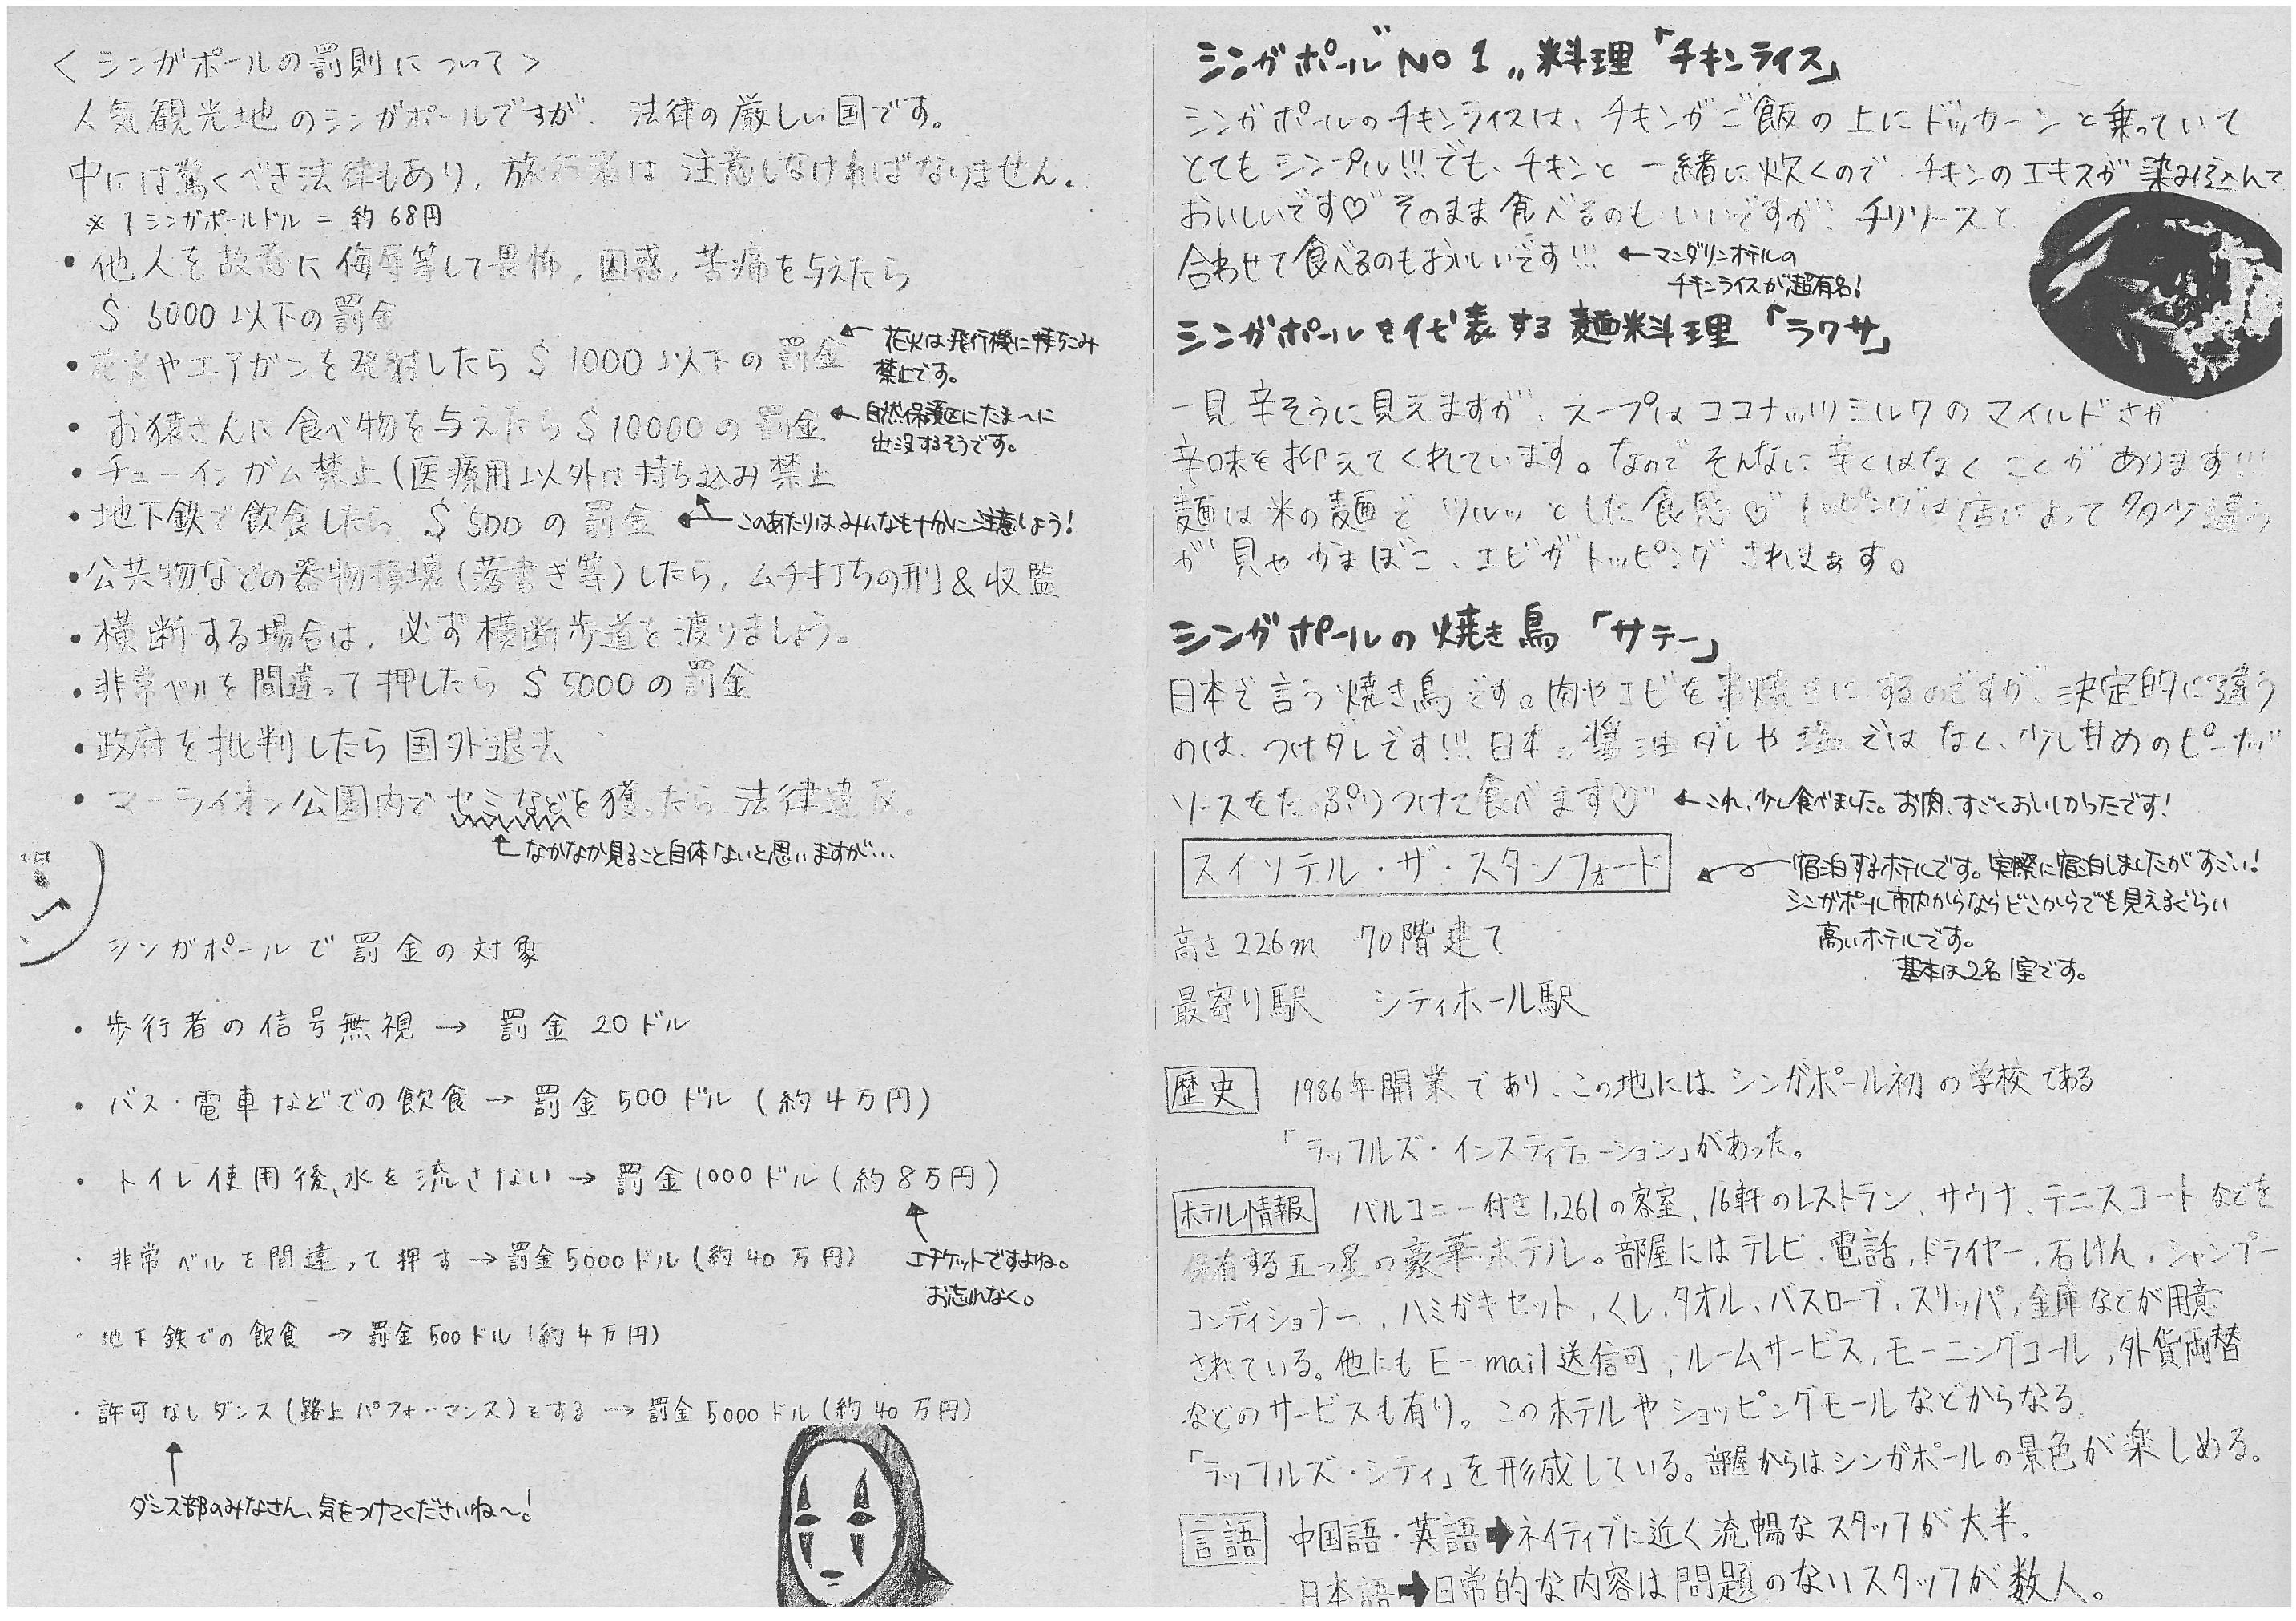 ＜シンガポールの罰則について＞
人気観光地のシンガポールですが、法律の厳しい国です。
中には驚くべき法律もあり、旅行者は注意しなければなりません。
※1シンガポールドル＝約68円
・他人を故意に侮辱等して畏怖，困惑，苦痛を与えたら
＄5000以下の罰金
・花火やエアガンを発射したら＄1000以下の罰金
←花火は飛行機に持ちこみ
禁止です。
・お猿さんに食べ物を与えたら＄10000の罰金
←自然保護区にたま〜に
出没するそうです。
・チューインガム禁止（医療用以外は持ち込み禁止
・地下鉄で飲食したら ＄500の罰金
←このあたりはみんなも十分に注意しよう！
・公共物などの器物損壊（落書き等）したら，ムチ打ちの刑＆収監
・横断する場合は，必ず横断歩道を渡りましょう。
・非常ベルを間違って押したら ＄5000の罰金
・政府を批判したら国外退去
・マーライオン公園内でセミなどを獲ったら法律違反。
←なかなか見ること自体ないと思いますが…
シンガポールで罰金の対象
・歩行者の信号無視 → 罰金20ドル
・バス・電車などでの飲食 → 罰金500ドル（約4万円）
・トイレ使用後、水を流さない → 罰金1000ドル（約8万円）
・非常ベルを間違って押す → 罰金5000ドル（約40万円）
エチケットですよね。
お忘れなく。
・地下鉄での飲食 → 罰金500ドル（約4万円）
・許可なしダンス（路上パフォーマンス）をする → 罰金5000ドル（約40万円）
ダンス部のみなさん、気をつけてくださいね〜！
シンガポール"NO1〟料理「チキンライス」
シンガポールのチキンライスは、チキンがご飯の上にドッカーンと乗っていて
とてもシンプル!!!でも、チキンと一緒に炊くので、チキンのエキスが染み込んで
おいしいです♡そのまま食べるのもいいですが、チリソースと
合わせて食べるのもおいしいです!!!
←マンダリンホテルの
チキンライスが超有名！
シンガポールを代表する麺料理「ラクサ」
一見辛そうに見えますが、スープはココナッツミルクのマイルドさが
辛味を抑えてくれています。なのでそんなに辛くはなくことがあります!!!
麺は米の麺でツルッとした食感♡トッピングは店によって多少違う
が貝やかまぼこ、エビがトッピングされまあす。
シンガポールの焼き鳥「サテー」
日本で言う焼き鳥です。肉やエビを串焼きにするのですが、決定的に違う
のは、つけダレです!!!日本の醤油ダレや塩ではなく、少し甘めのピーナッツ
ソースをたっぷりつけて食べます♡
←これ、少し食べました。お肉、すごくおいしかったです！
スイソテル・ザ・スタンフォード
宿泊するホテルです。実際に宿泊しましたがすごい！
シンガポール市内からならどこからでも見えるぐらい
高いホテルです。
基本は2名1室です。
高さ226m 70階建て
最寄り駅 シティホール駅
歴史 1986年開業であり、この地にはシンガポール初の学校である
「ラッフルズ・インスティテューション」があった。
ホテル情報 バルコニー付き1,261の客室、16軒のレストラン、サウナ、テニスコートなどを
保有する五つ星の豪華ホテル。部屋にはテレビ，電話，ドライヤー，石けん，シャンプー
コンディショナー，ハミガキセット，くし，タオル，バスローブ，スリッパ，金庫などが用意
されている。他にもE-mail送信可，ルームサービス，モーニングコール，外貨両替
などのサービスも有り。このホテルやショッピングモールなどからなる
「ラッフルズ・シティ」を形成している。部屋からはシンガポールの景色が楽しめる。
言語 中国語・英語➡ネイティブに近く流暢なスタッフが大半。
日本語➡日常的な内容は問題のないスタッフが数人。